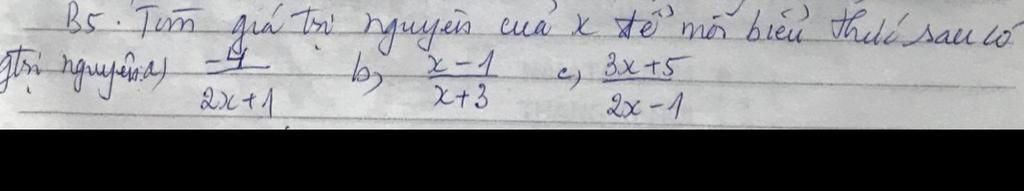 B5. Tìm giá trị nguyên của x để mỗi biểu thức sau có
gtrị nguyên: a) -4/(2x+1) b, (x-1)/(x+3) c, (3x+5)/(2x-1)